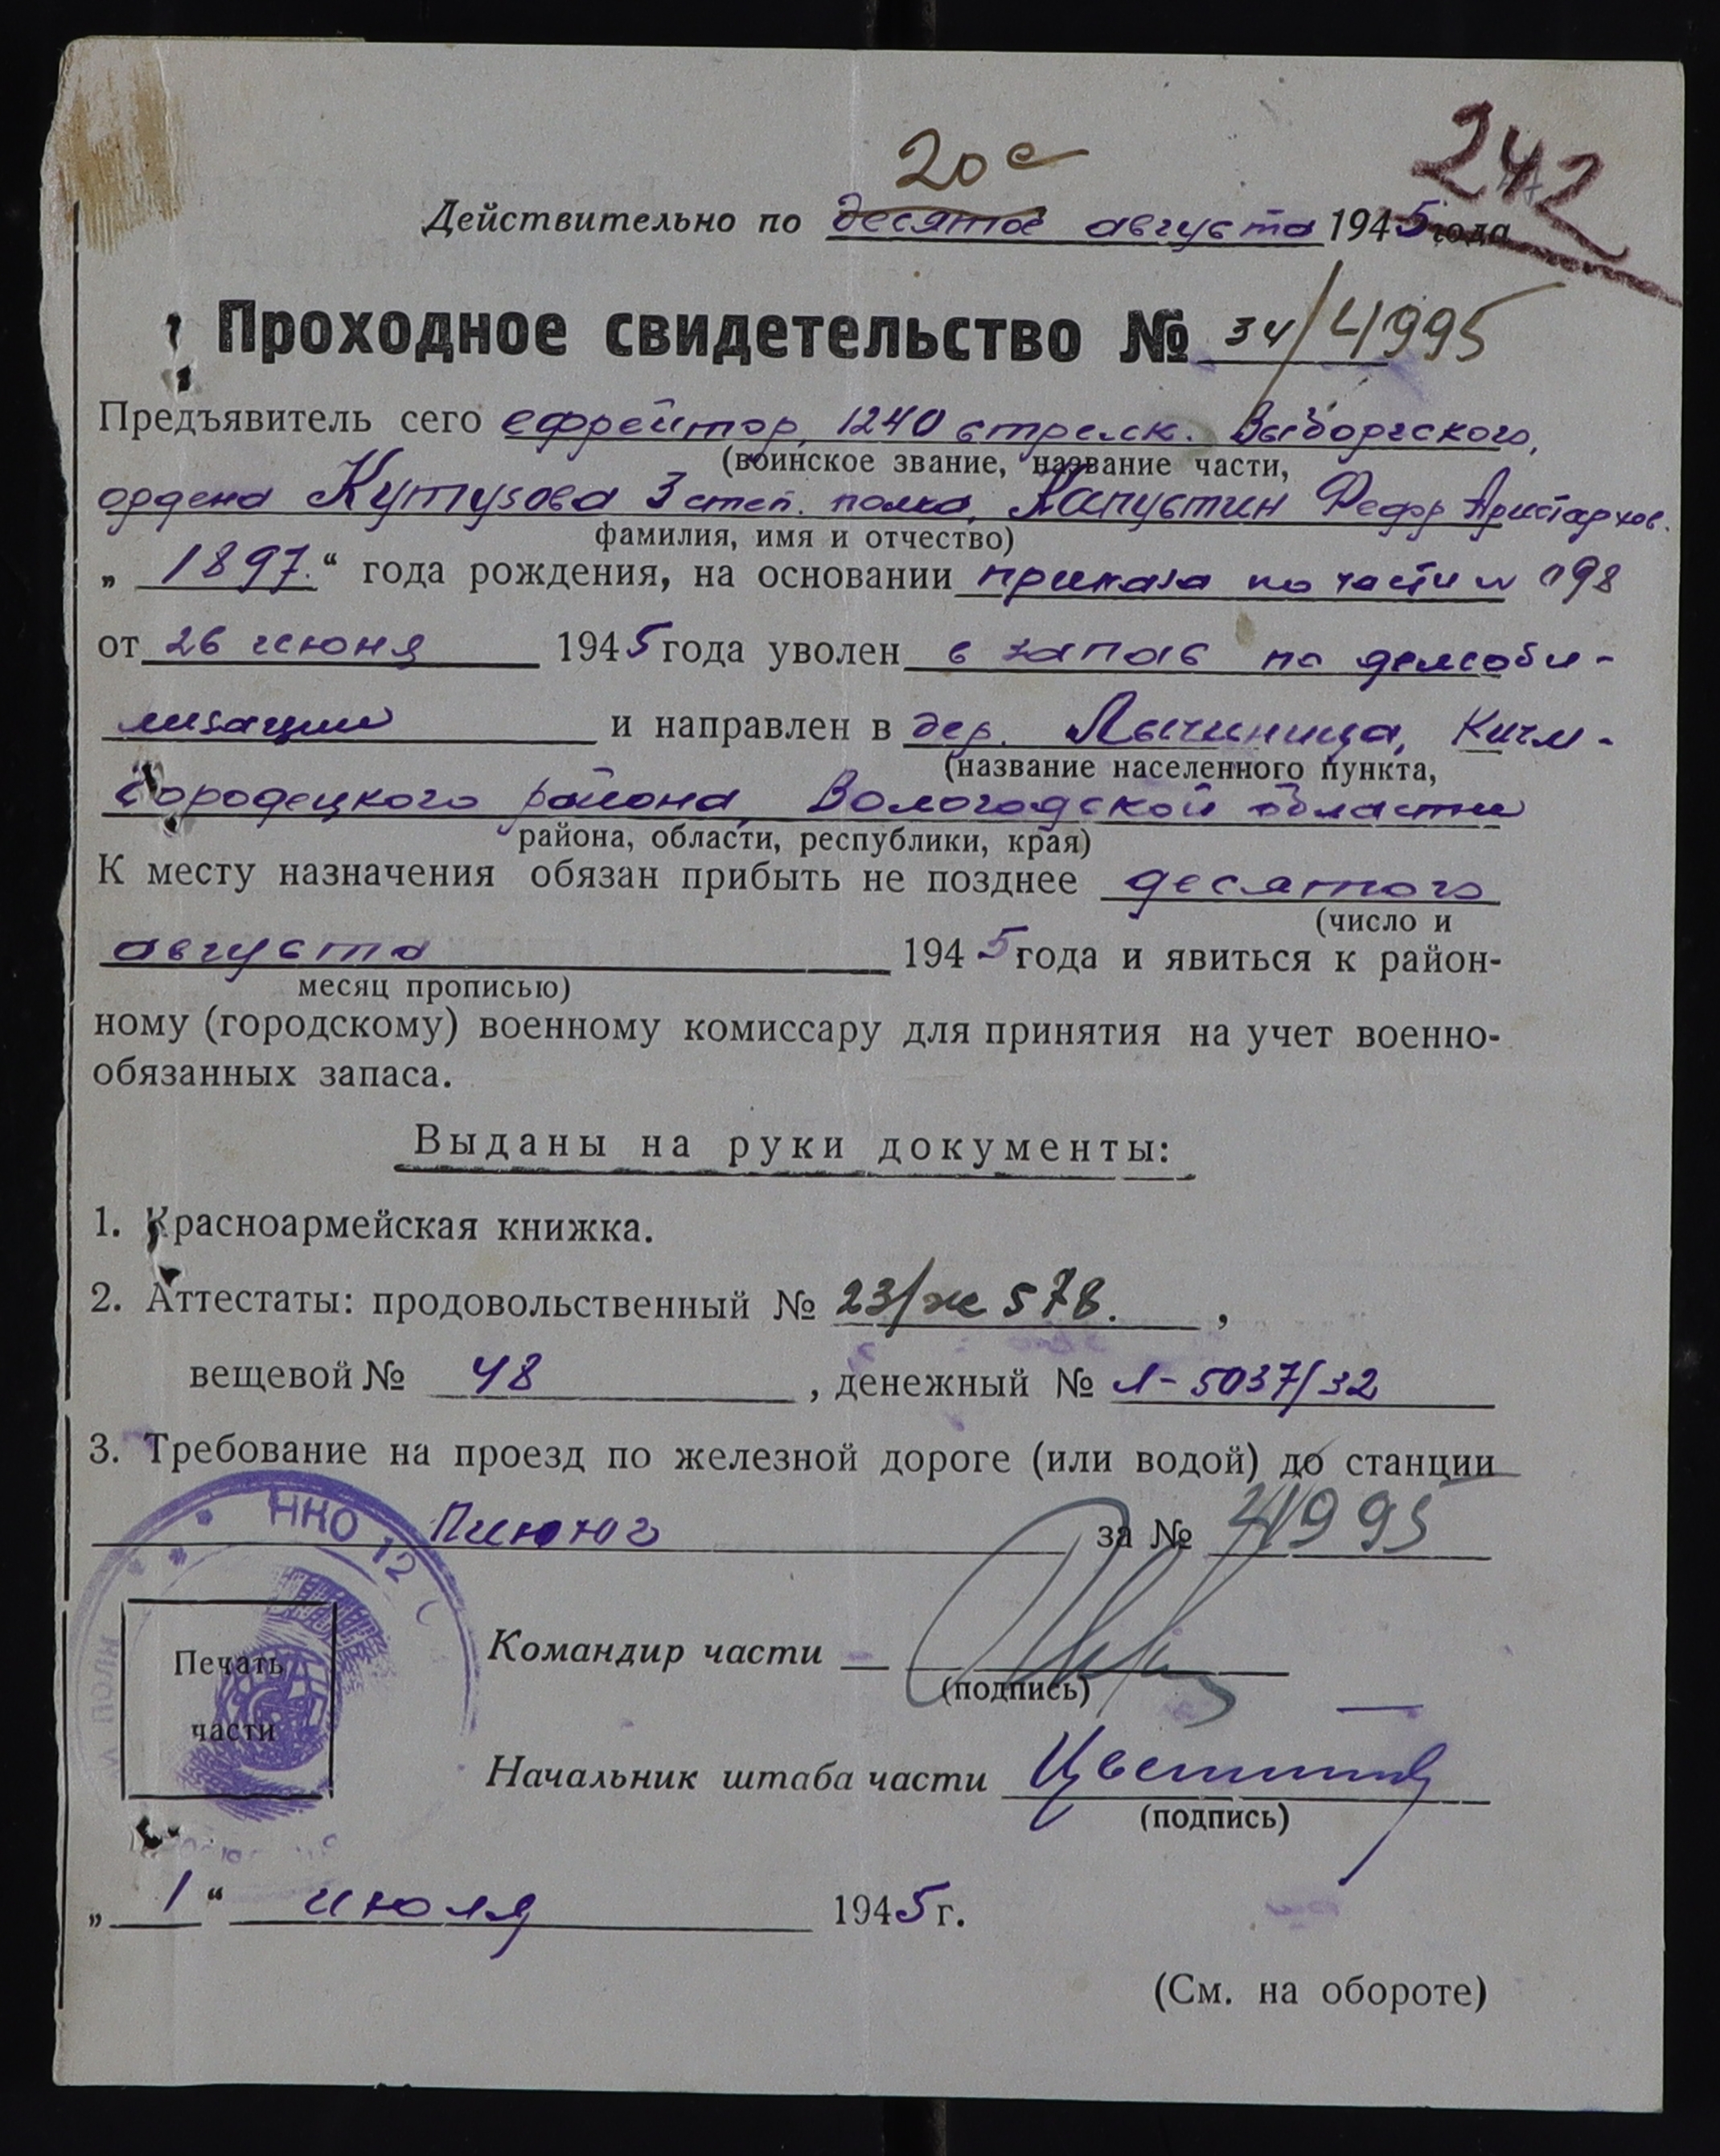 242
20е
Действительно по десятое августа 1945 года
Проходное свидетельство № 34/4995
Предъявитель сего ефрейтор, 1240 стрелск. Выборгского,
(воинское звание, название части,
ордена Кутузова 3 степ. полка, Капустин Федор Аристархов.
фамилия, имя и отчество)
„ 1897. “ года рождения, на основании приказа по части № 098
от 26 июня 1945 года уволен в запас по демоби-
лизации и направлен в дер. Лычиница, Кичм-
(название населенного пункта,
Городецкого района, Вологодской области
района, области, республики, края)
К месту назначения обязан прибыть не позднее десятого
(число и
августа 1945 года и явиться к район-
месяц прописью)
ному (городскому) военному комиссару для принятия на учет военно-
обязанных запаса.
Выданы на руки документы:
1. Красноармейская книжка.
2. Аттестаты: продовольственный № 23/ж 578. ,
вещевой № 48 , денежный № Л-5037/32
3. Требование на проезд по железной дороге (или водой) до станции
Пинюг за № 4995
НКО 12
Печать
части
полк
Командир части
(подпись)
Начальник штаба части
(подпись)
„ 1 “ июля 1945 г.
(См. на обороте)